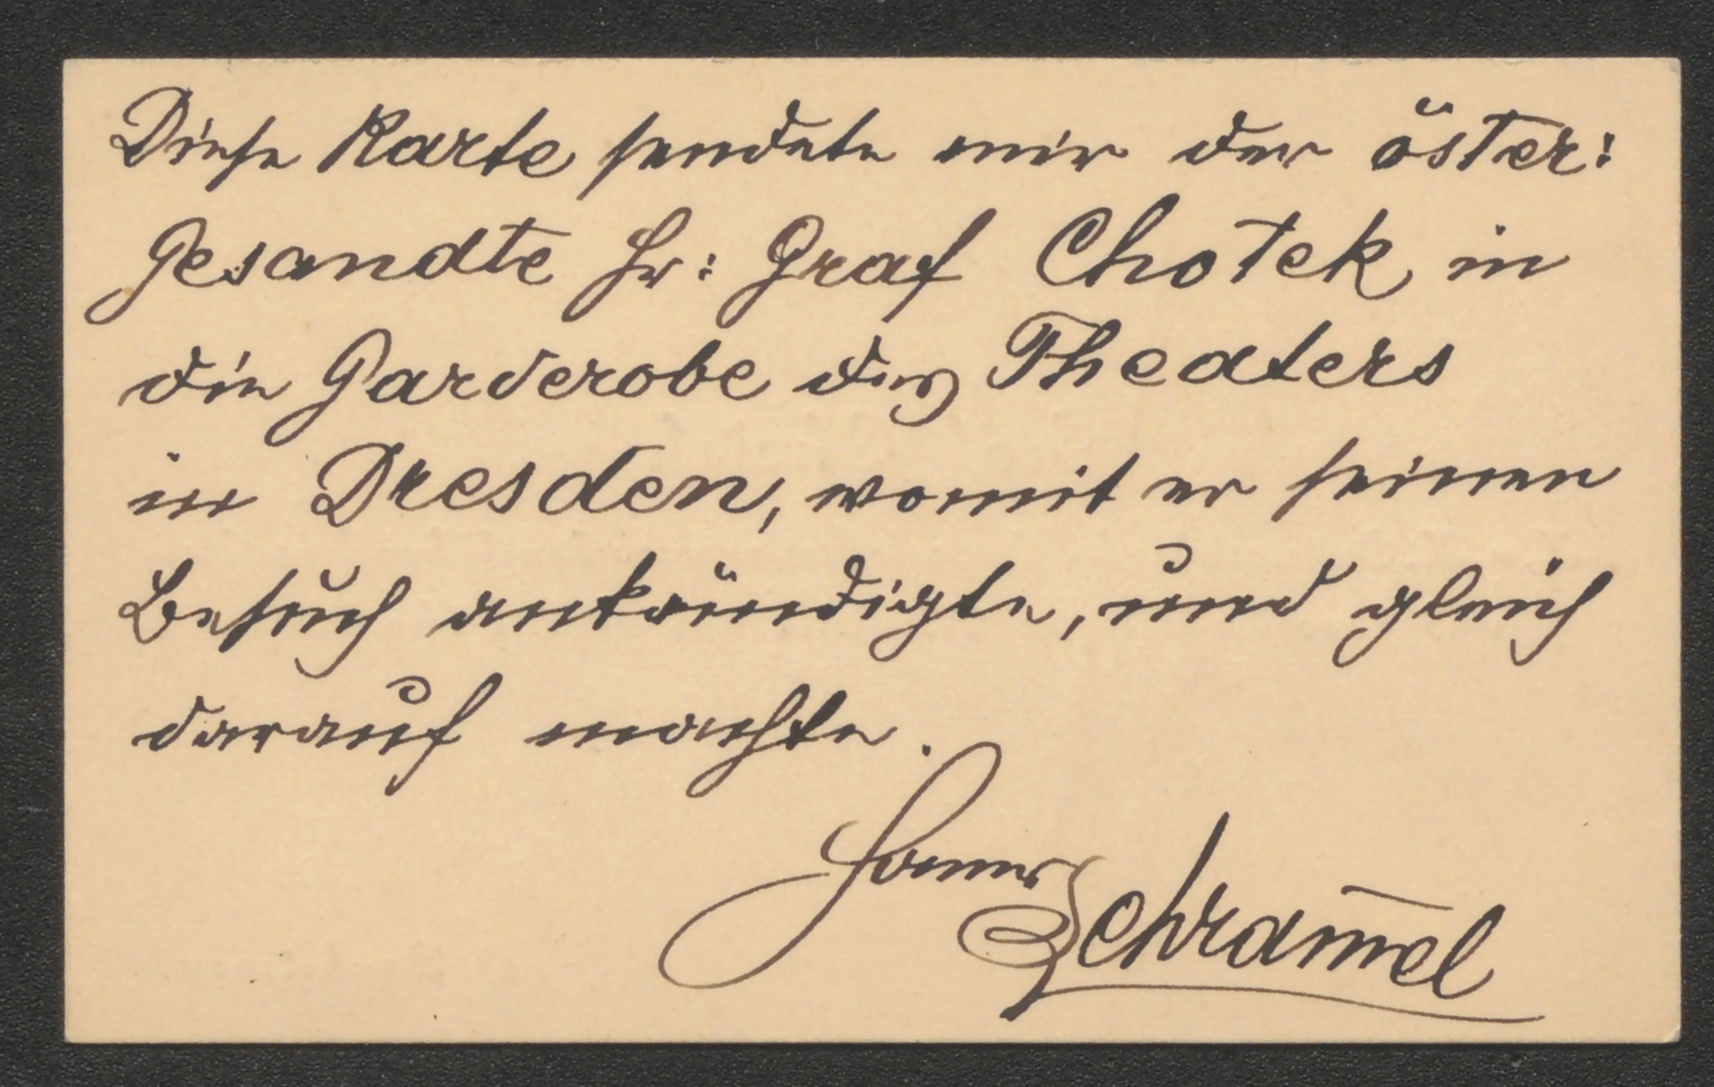 Diese Karte sendete mir der öster:
Gesandte Hr: Graf Chotek in
die Garderobe des Theaters
in Dresden, womit er seinen
Besuch ankündigte, und gleich
darauf machte.
Hanns
Schram̅el